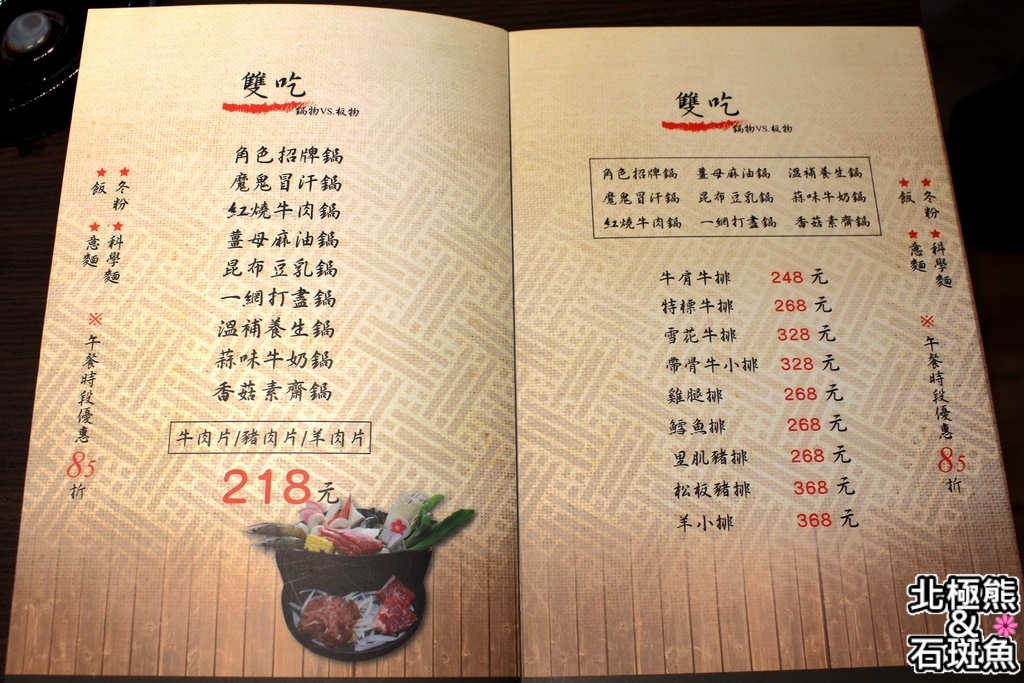 雙吃
鍋物VS.板物
角色招牌鍋
魔鬼冒汗鍋
紅燒牛肉鍋
薑母麻油鍋
昆布豆乳鍋
一網打盡鍋
溫補養生鍋
蒜味牛奶鍋
香菇素齋鍋
牛肉片/豬肉片/羊肉片
218元
★冬粉
★飯
★科學麵
★意麵
※午餐時段優惠85折
雙吃
鍋物VS.板物
角色招牌鍋 薑母麻油鍋 溫補養生鍋
魔鬼冒汗鍋 昆布豆乳鍋 蒜味牛奶鍋
紅燒牛肉鍋 一網打盡鍋 香菇素齋鍋
牛肩牛排 248 元
特標牛排 268 元
雪花牛排 328 元
帶骨牛小排 328 元
雞腿排 268 元
鱈魚排 268 元
里肌豬排 268 元
松板豬排 368 元
羊小排 368 元
★冬粉
★飯
★科學麵
★意麵
※午餐時段優惠85折
北極熊
&
石斑魚